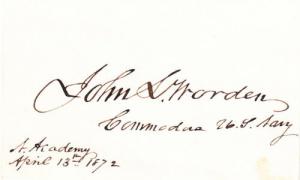 John L. Worden
Commodore U.S. Navy
N. Academy
April 13th 1872